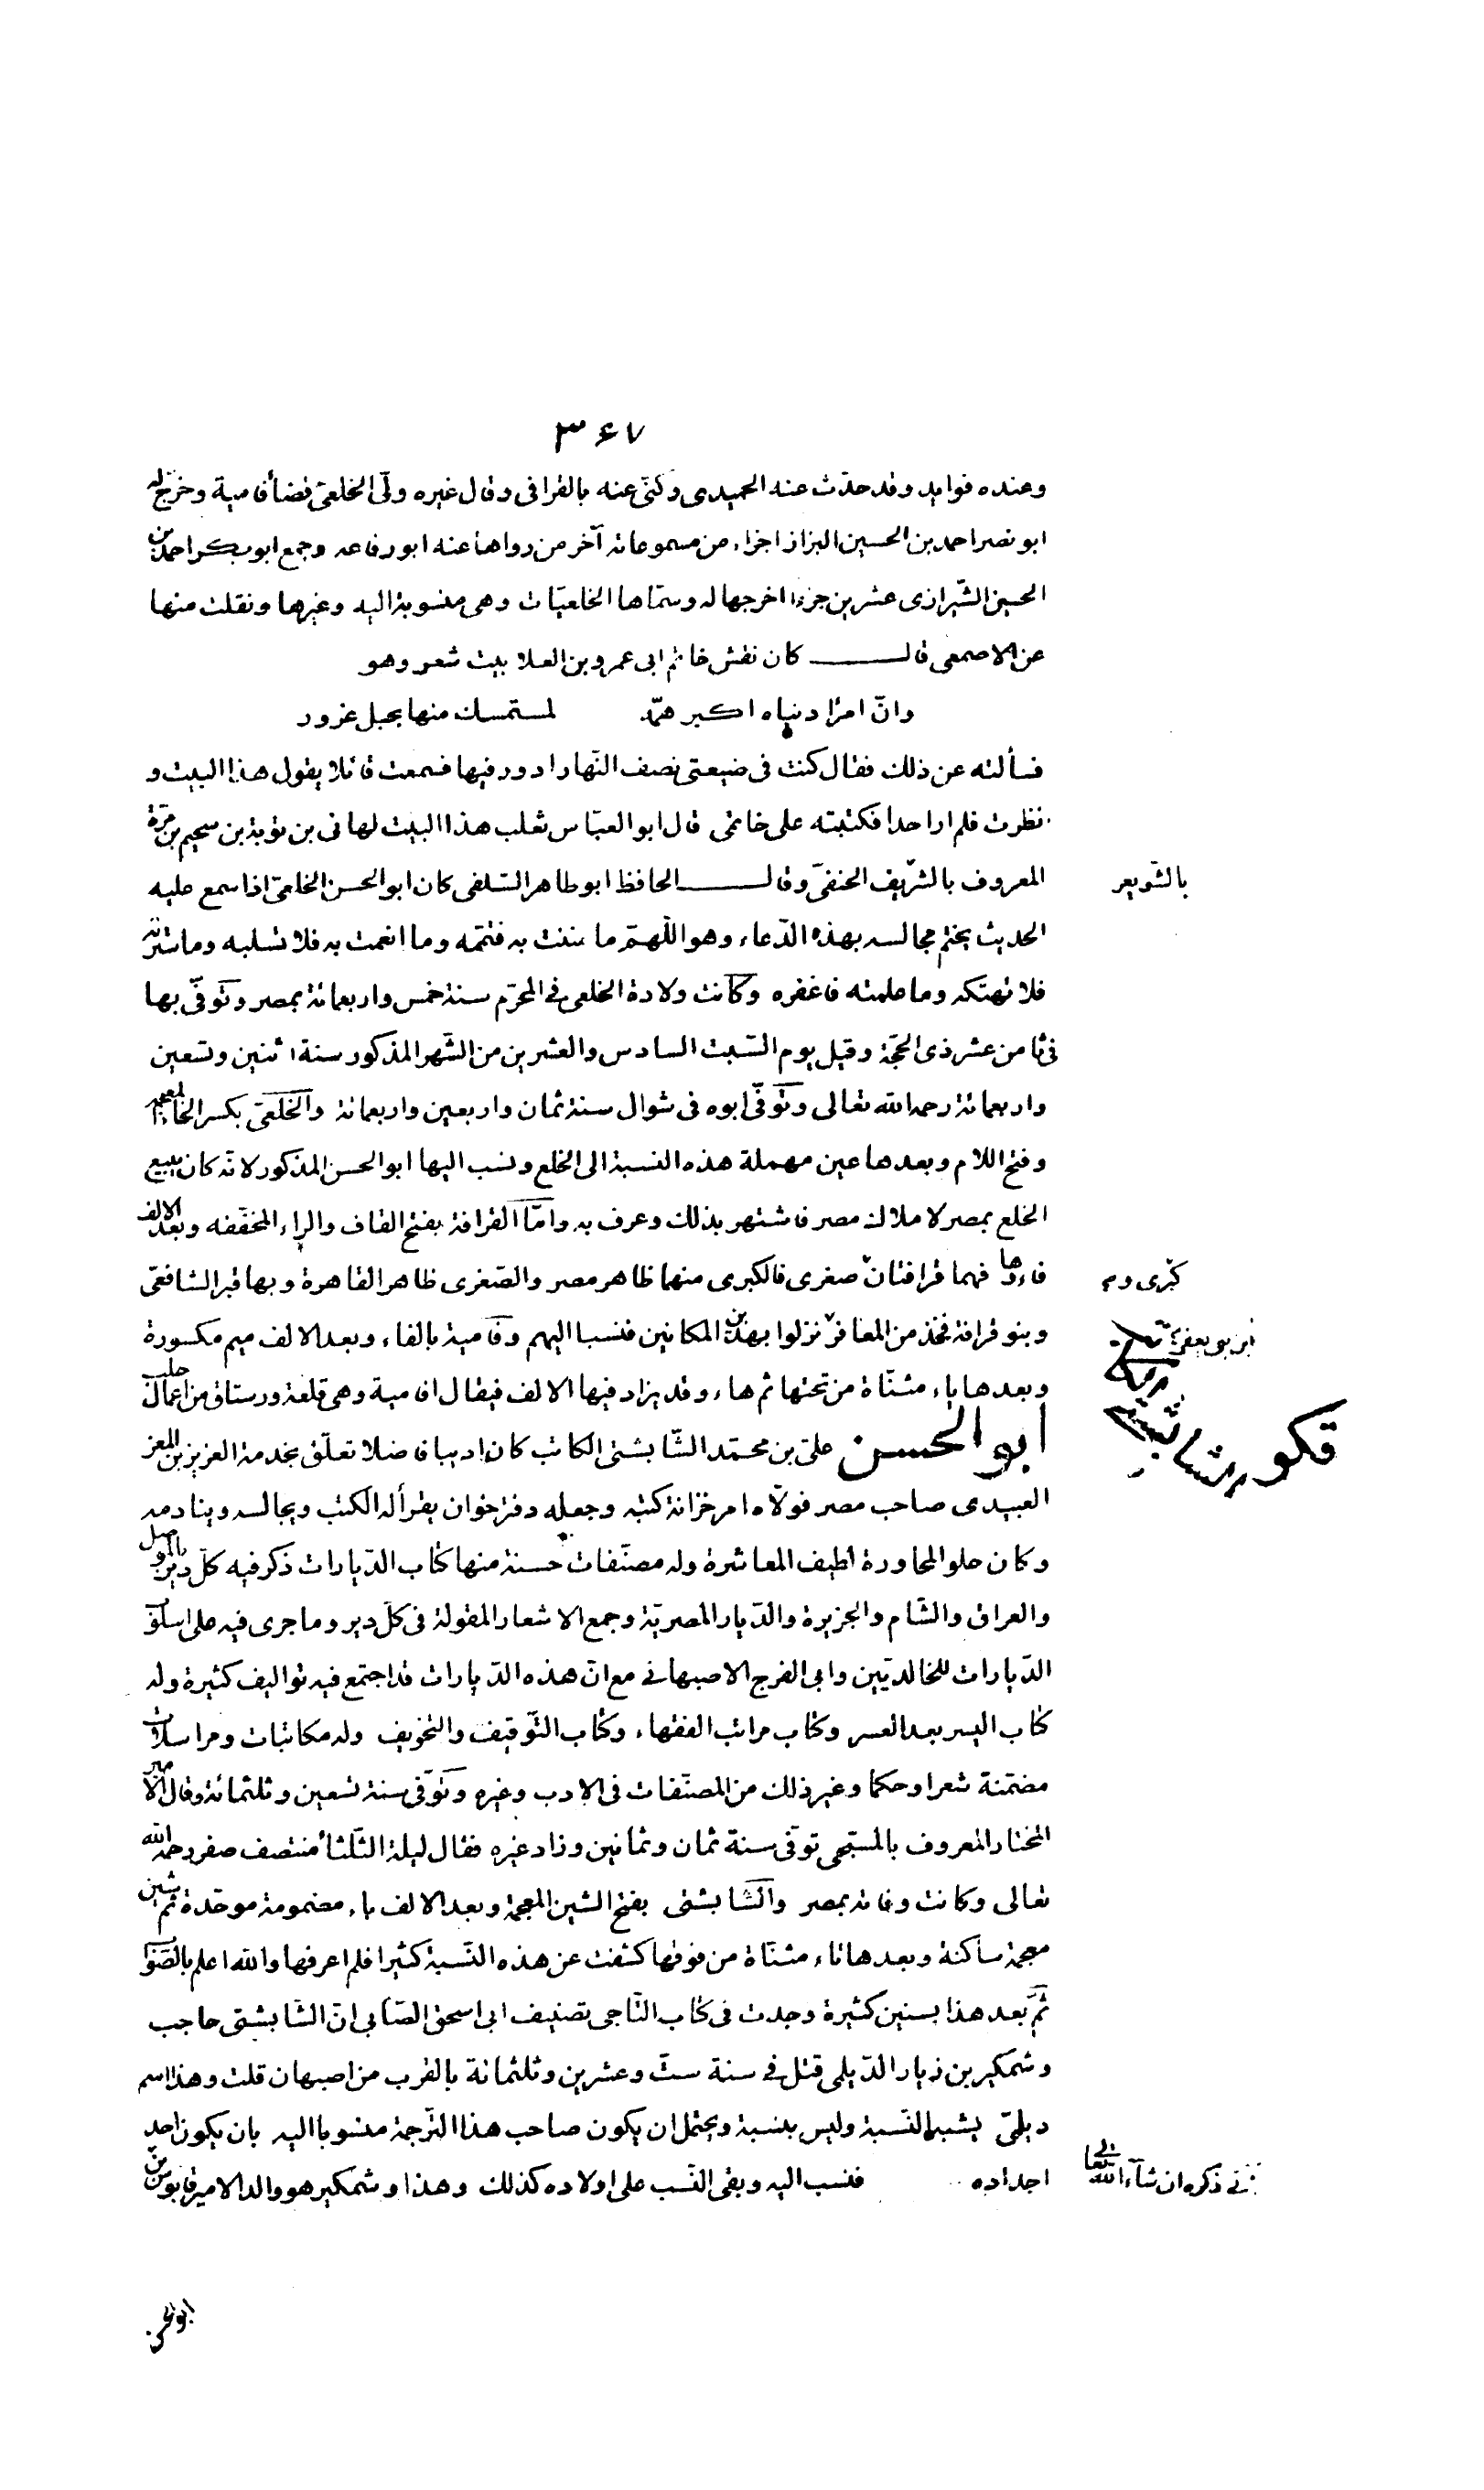 ٣٦٧
وعنده فوايد وقد حدّث عنه الحميدى وكنّى عنه بالقرافى وقال غيره ولّى الخلعىّ قضأ فامية وخرّج له
ابو نصر احمد بن الحسين البزاز اجزاء من مسموعاته آخر من رواها عنه ابو رفاعه وجمع ابو بكر احمد بن
الحسين الشّيرازى عشرين جزءا اخرجها له وسمّاها الخلعيّات وهى منسوبة اليه وغيرها ونقلت منها
عن الاصمعى قال كان نقش خاتم ابى عمرو بن العلا بيت شعر وهو
وانّ امرًا دنياه اكبر همّه لمستمسك منها بحبل غرور
فسألته عن ذلك فقال كنت فى ضيعتى نصف النّهار ادور فيها فسمعت قائلا يقول هذا البيت و
نظرت فلم ار احدا فكتبته على خاتمى قال ابو العبّاس ثعلب هذا البيت لهانى بن توبة بن سحيم بن مرّة
المعروف بالشّريف الحنفىّ وقال الحافظ ابو طاهر السّلفى كان ابو الحسن الخلعىّ اذا سمع عليه
بالشّويعر
الحديث يختم مجالسه بهذا الدّعاء وهو اللّهمّ ما مننت به فتمّمه وما انعمت به فلا تسلبه وما سترته
فلا تهتكه وما علمته فاغفره وكانت ولادة الخلعى فى المحرّم سنة خمس واربعمائة بمصر وتوفّى بها
فى ثامن عشر ذى الحجّة وقيل يوم السّبت السادس والعشرين من الشّهر المذكور سنة اثنين وتسعين
واربعمائة رحمه الله تعالى وتوفّى ابوه فى شوال سنة ثمان واربعين واربعمائة والخلعىّ بكسر الخاء المعجمة
وفتح اللام وبعدها عين مهملة هذه النسبة الى الخلع ونسب اليها ابو الحسن المذكور لانّه كان يبيع
الخلع بمصر لاملاك مصر فاشتهر بذلك وعرف به وامّا القرافة بفتح القاف والراء المخفّفه وبعد الالف
فاء وها فهما قرافتان صغرى فالكبرى منهما ظاهر مصر والصّغرى ظاهر القاهرة وبها قبر الشافعىّ
كبرى و
وبنو قرافة فخذ من المعافر نزلوا بهذين المكانين فنسبا اليهم وفامية بالفاء وبعد الالف ميم مكسورة
وبعدها ياء مثنّاة من تحتها ثم هاء وقد يزاد فيها الالف فيقال افامية وهى قلعة ورستاق من اعمال حلب
ابو الحسن علىّ بن محمّد الشّابشتى الكاتب كان اديبا فاضلا تعلّق بخدمة العزيز بن المعز
الشابشتى
العبيدى صاحب مصر فولّاه امر خزانة كتبه وجعله دفترخوان يقرأ له الكتب ويجالسه وينادمه
وكان حلو المحاورة لطيف المعاشرة وله مصنّفات حسنة منها كتاب الدّيارات ذكر فيه كلّ دير بالموصل
والعراق والشّام والجزيرة والدّيار المصريّة وجمع الاشعار المقولة فى كلّ دير وما جرى فيه على اسلوب
الدّيارات للخالديّين وابى الفرج الاصبهانى مع انّ هذه الدّيارات قد اجتمع فيه تواليف كثيرة وله
كتاب اليسر بعد العسر وكتاب مراتب الفقهاء وكتاب التّوقيف والتخويف وله مكاتبات ومراسلات
مضمّنة شعرا وحكما وغير ذلك من المصنّفات فى الادب وغيره وتوفّى سنة تسعين وثلثمائة وقال الامير
المختار المعروف بالمسبّحى توفّى سنة ثمان وثمانين وزاد غيره فقال ليلة الثّلثأ منتصف صفر رحمه الله
تعالى وكانت وفاته بمصر والشّابشتى بفتح الشين المعجمة وبعد الالف باء مضمومة موحّدة ثم شين
معجمة ساكنة وبعدها تاء مثنّاة من فوقها كشفت عن هذه النّسبة كثيرا فلم اعرفها والله اعلم بالصّواب
ثمّ بعد هذا بسنين كثيرة وجدت فى كتاب التّاجى تصنيف ابى اسحق الصّابى انّ الشّابشتى حاجب
وشمكير بن زيار الدّيلمى قتل فى سنة ستّ وعشرين وثلثمائة بالقرب من اصبهان قلت وهذا اسم
ديلمىّ يشبه النّسبة وليس بنسبة ويحتمل ان يكون صاحب هذا التّرجمة منسوبا اليه بان يكون احد
اجداده فنسب اليه وبقى النّسب على اولاده كذلك وهذا وشمكير هو والد الامير قابوس بن
ذكره ان شآء الله تعالى
ابو الحسن